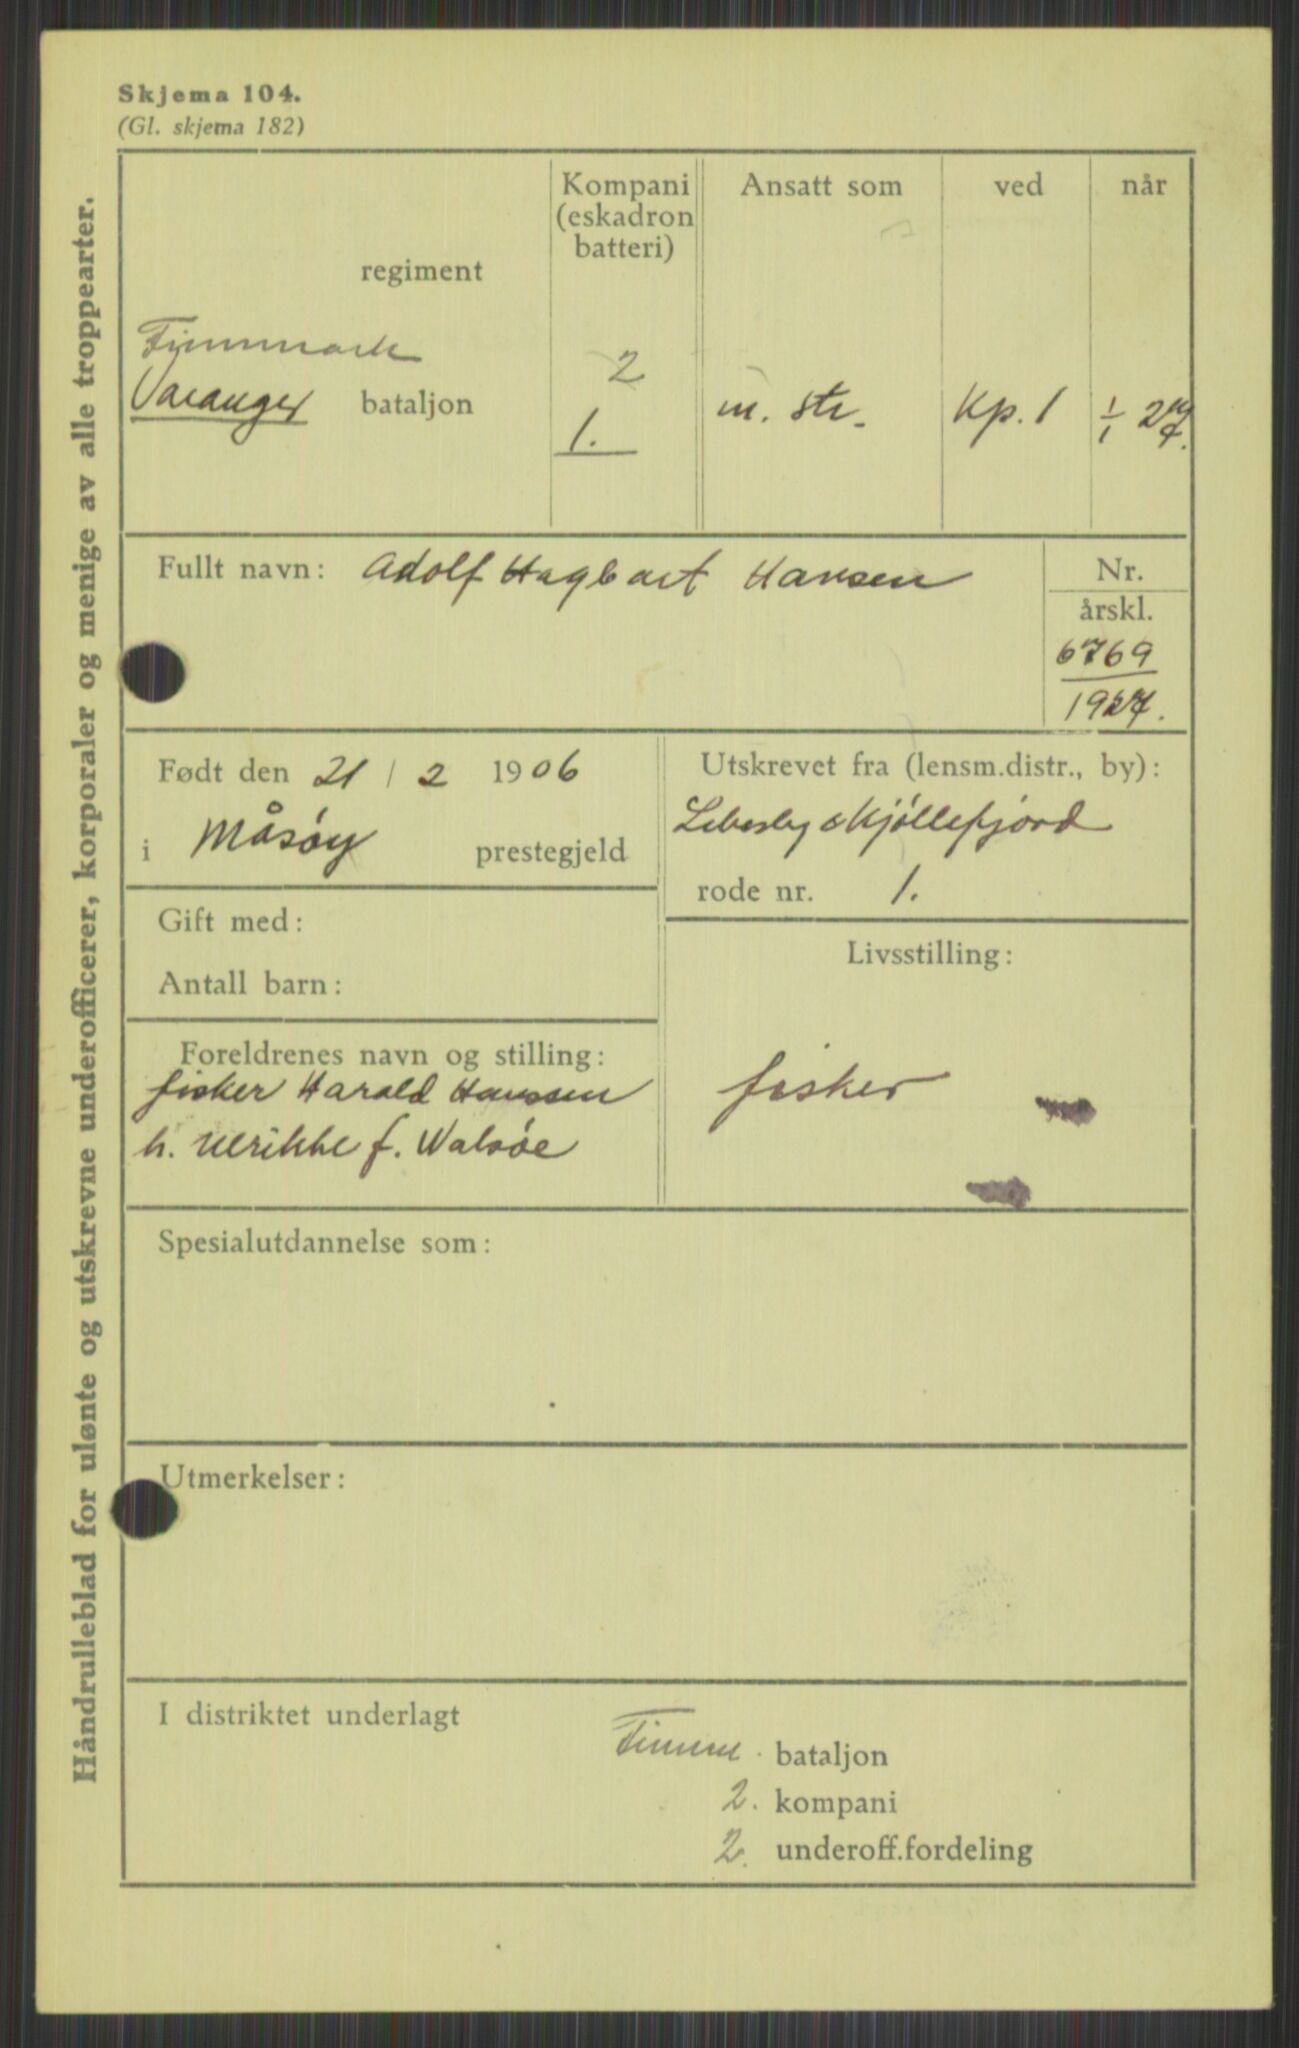 Skjema 104.
(Gl. skjema 182)
Håndrulleblad for ulønte og utskrevne underofficerer, korporaler og menige av alle troppearter.
Kompani
(eskadron
batteri)
Ansatt som
ved
når
regiment
Finnmark
2
Varanger bataljon
1.
m. str.
Kp. 1
1/1 27
Fullt navn: Adolf Hagbart Hansen
Nr.
årskl.
6769
1927.
Født den 21 / 2 1906
i Måsøy prestegjeld
Utskrevet fra (lensm.distr., by):
Lebesby Kjøllefjord
rode nr. 1.
Gift med:
Antall barn:
Livsstilling:
fisker
Foreldrenes navn og stilling:
fisker Harald Hanssen
h. Ulrikke f. Walsøe
Spesialutdannelse som:
Utmerkelser:
I distriktet underlagt
Finnm. bataljon
2. kompani
2. underoff.fordeling